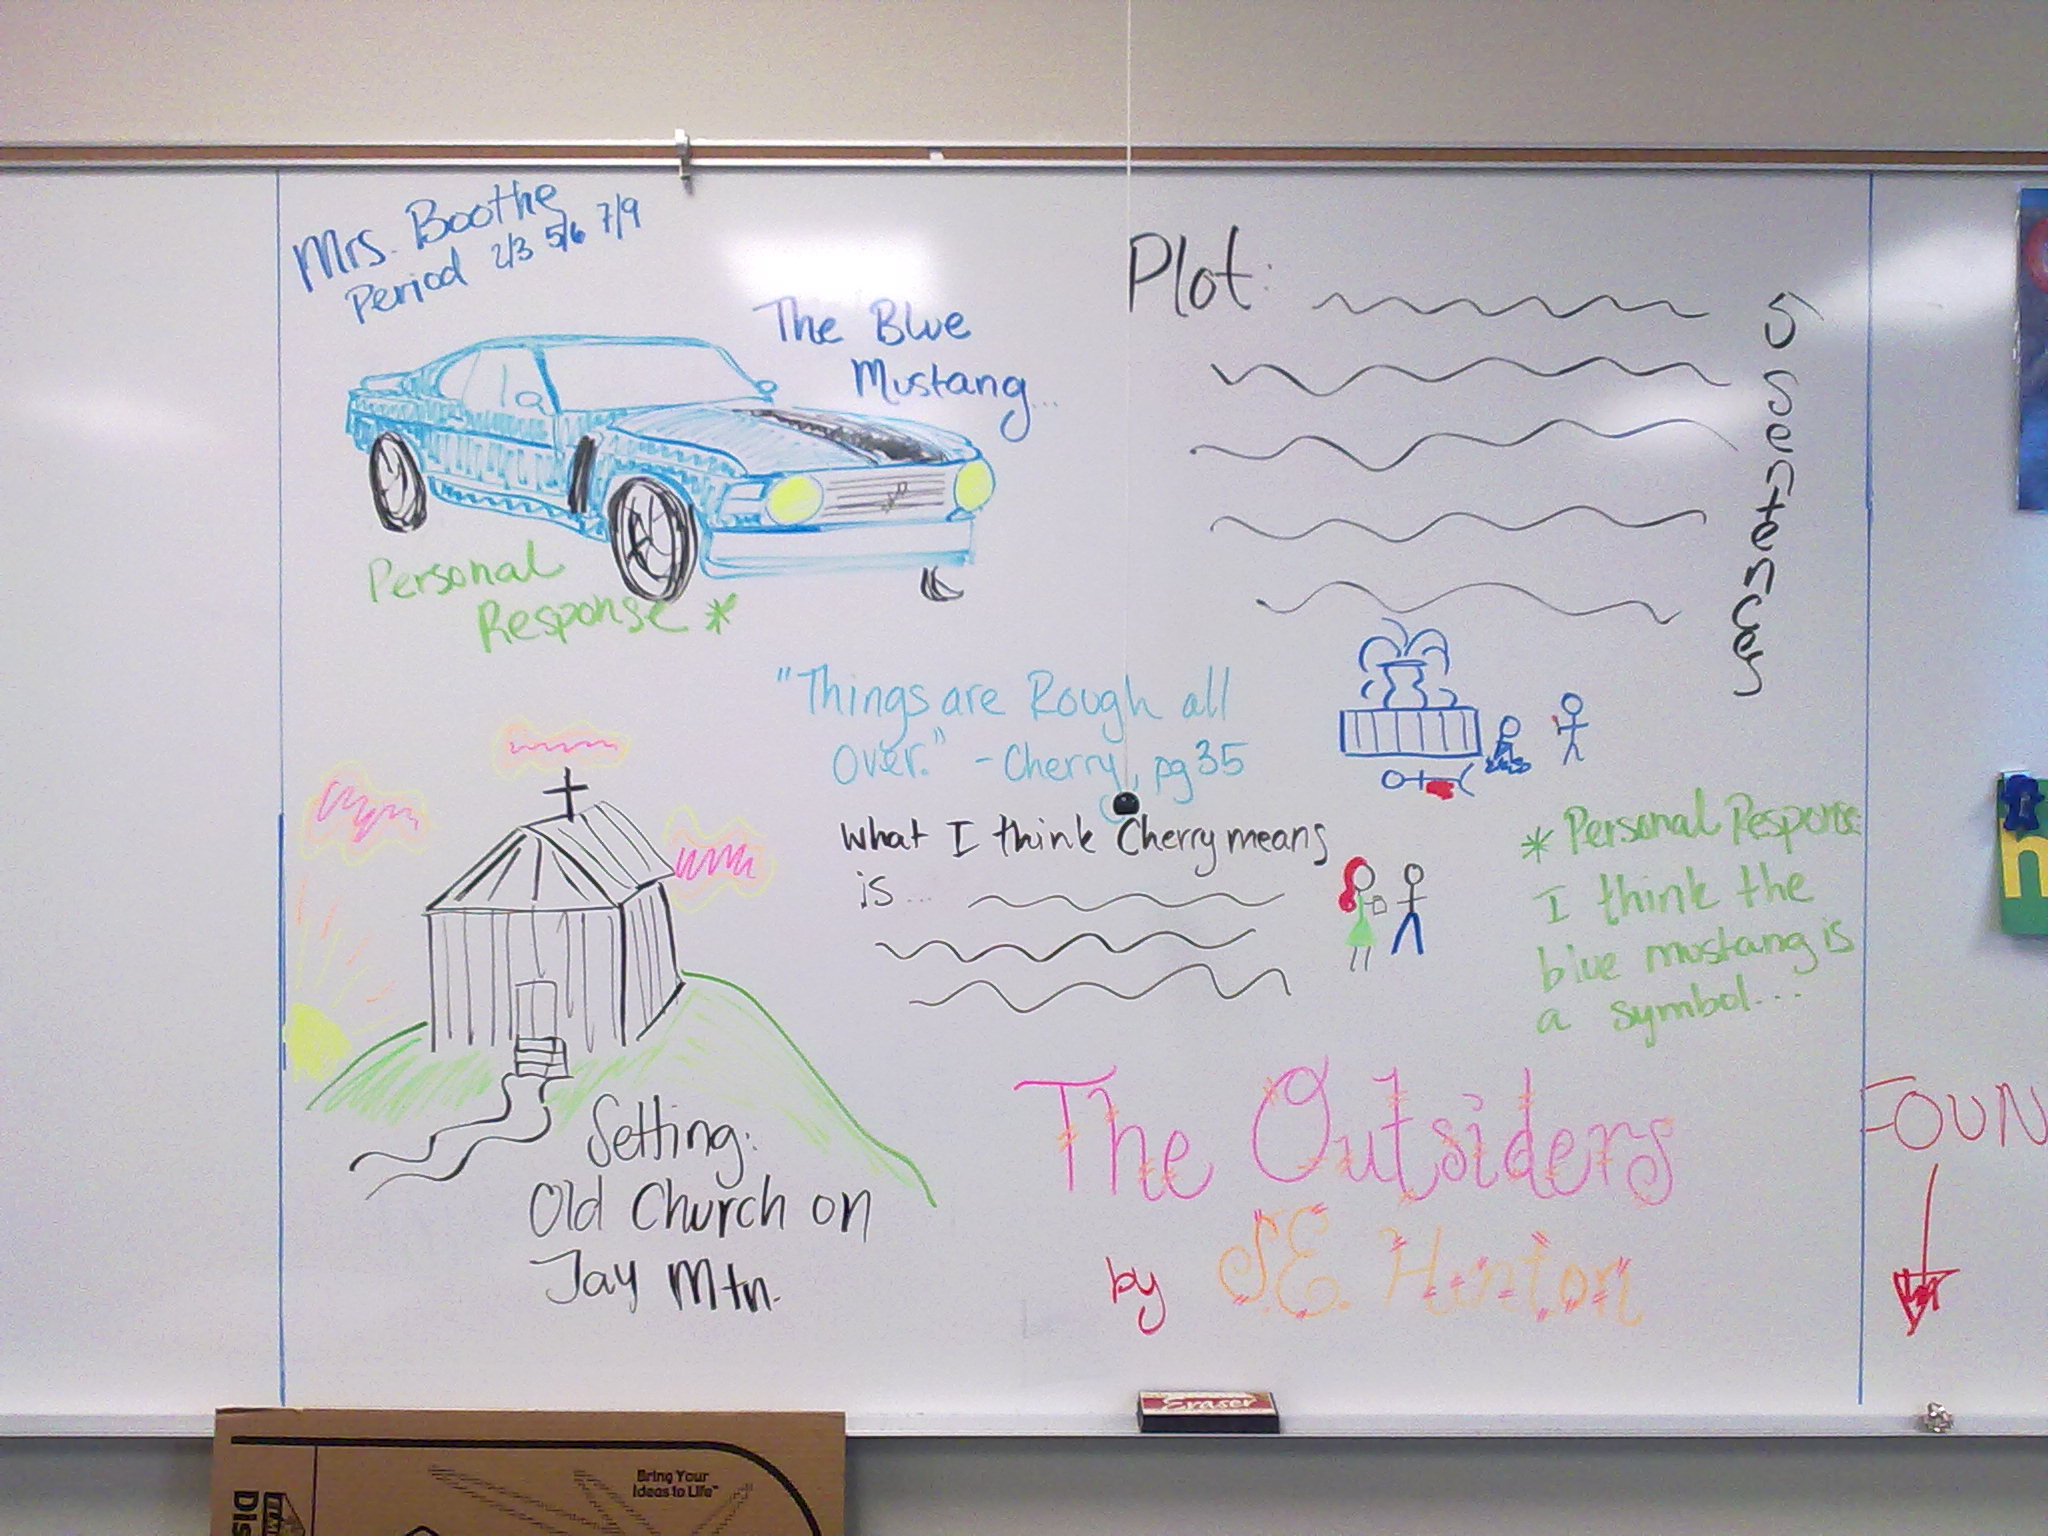 Mrs. Boothe
Period 2/3 5/6 7/9
The Blue
Mustang...
Personal
Response *
Plot:
5 Sentences
"Things are Rough all
Over." - Cherry, pg 35
What I think Cherry means
is...
* Personal Response
I think the
blue mustang is
a symbol...
Setting:
Old Church on
Jay Mtn.
The Outsiders
by S.E. Hinton
FOUN
Eraser
Bring Your
Ideas to Life™